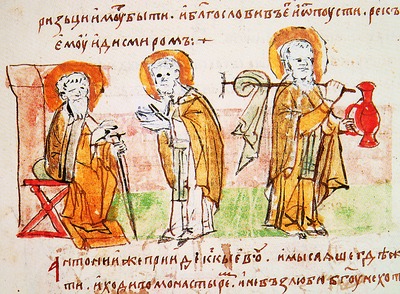 ризьци имоуть быти. и благословивъ е и ѿпоусти. рекъ
емоу иди с миромъ:+
Антонии же прииде къ кыевоу. и мысляше где жи
ти. и ходи по монастыремъ. и не възлюби. бгоу не хот